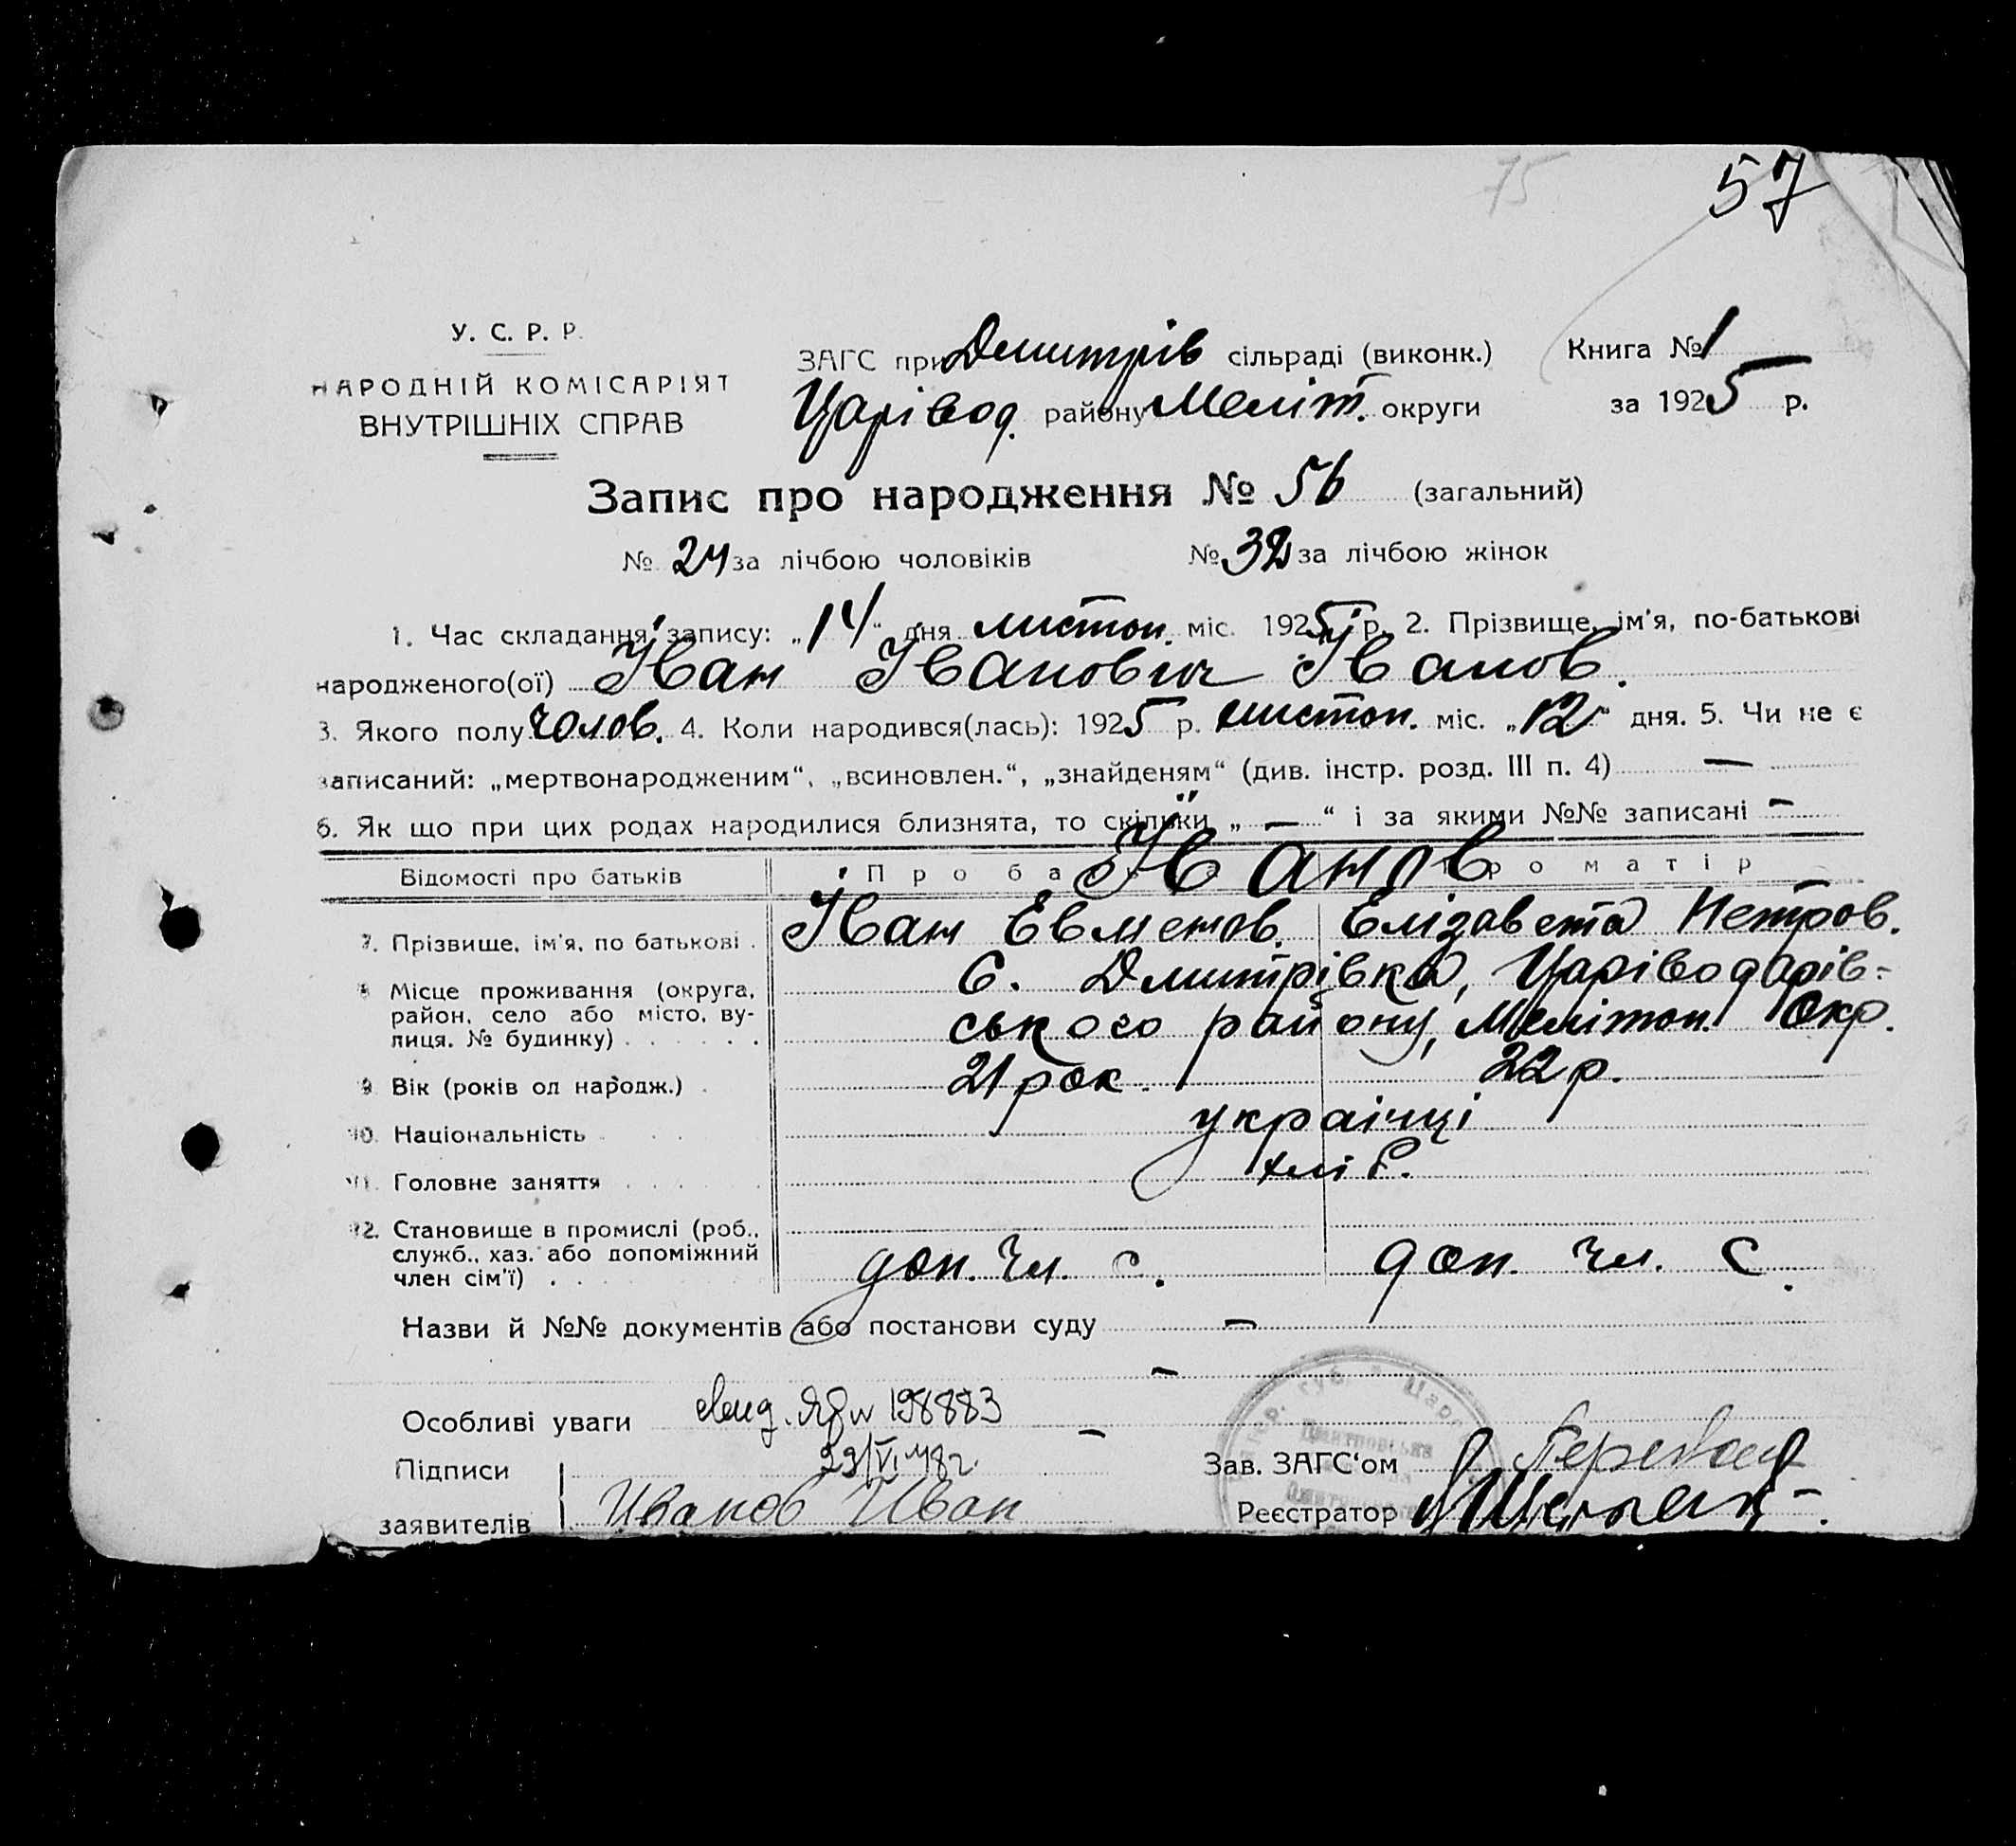 75
57
У. С. Р. Р.
НАРОДНІЙ КОМІСАРІЯТ
ВНУТРІШНІХ СПРАВ
ЗАГС при Дмитрів сільраді (виконк.)
Царівод. району Меліт. округи
Книга № 1
за 1925 р.
Запис про народження № 56 (загальний)
№ 24 за лічбою чоловіків № 32 за лічбою жінок
1. Час складання запису: „14“ дня листоп. міс. 1925 р. 2. Прізвище, ім'я, по-батькові
народженого(ої) Іван Іванович Іванов.
3. Якого полу Чолов. 4. Коли народився(лась): 1925 р. листоп. міс. „12“ дня. 5. Чи не є
записаний: „мертвонародженим“, „всиновлен.“, „знайденям“ (див. інстр. розд. III п. 4) —
6. Як що при цих родах народилися близнята, то скільки „ — “ і за якими №№ записані —
Відомості про батьків Про ба про матір
Їванов
7. Прізвище, ім'я, по батькові . Іван Евменов. Елізавета Петров.
8 Місце проживання (округа, С. Дмитрівка, Царіводарів-
район, село або місто, ву- ського району, Мелітоп. Окр.
лиця. № будинку) . . . . . .
9 Вік (років од народж.) . 21 рок. 22 р.
10. Національність українці
11. Головне заняття хліб.
12. Становище в промислі (роб.,
служб., хаз. або допоміжний
член сім'ї) . . доп. чл. с. доп. чл. с.
Назви й №№ документів або постанови суду —
—
Особливі уваги 198883 —
Підписи 23/VI 48 г.
заявителів Иванов Иван
Зав. ЗАГС'ом
Реєстратор